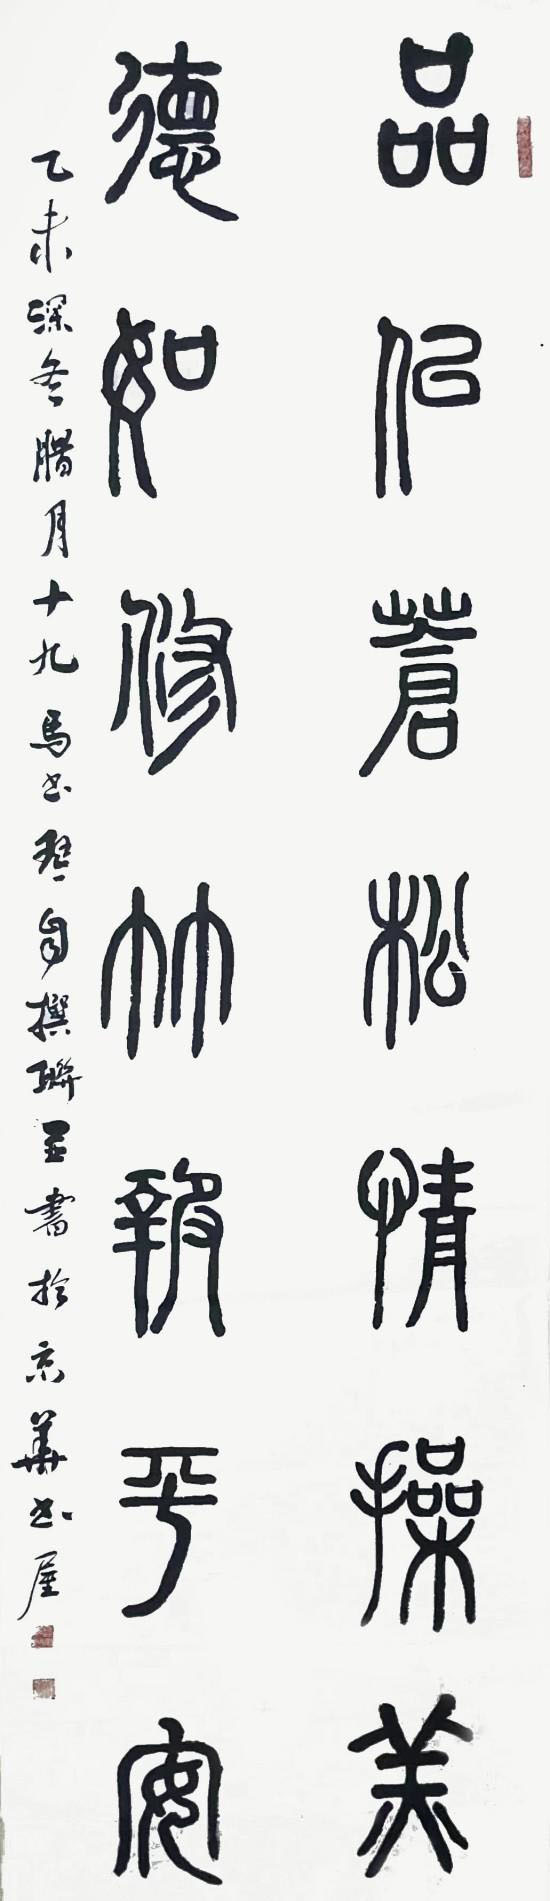 品似蒼松情操美
德如修竹報平安
乙未深冬腊月十九馬书琴自撰聯並書於京華书屋